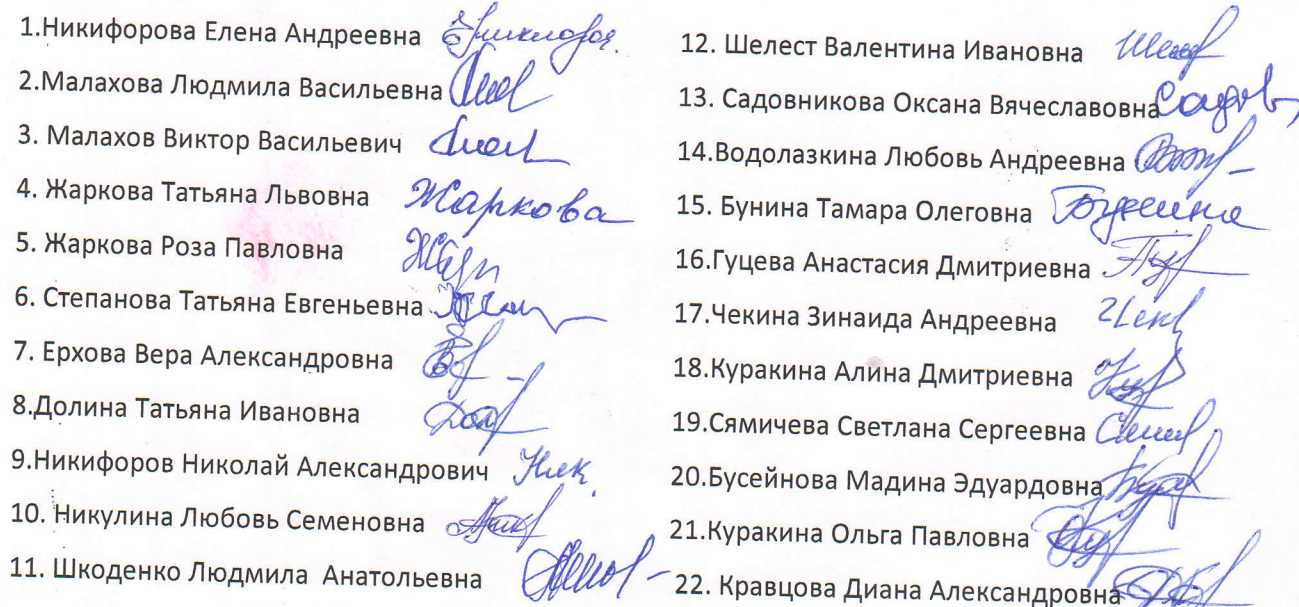 1.Никифорова Елена Андреевна
2.Малахова Людмила Васильевна
3. Малахов Виктор Васильевич
4. Жаркова Татьяна Львовна Жаркова
5. Жаркова Роза Павловна
6. Степанова Татьяна Евгеньевна
7. Ерхова Вера Александровна
8.Долина Татьяна Ивановна
9.Никифоров Николай Александрович
10. Никулина Любовь Семеновна
11. Шкоденко Людмила Анатольевна
12. Шелест Валентина Ивановна
13. Садовникова Оксана Вячеславовна
14.Водолазкина Любовь Андреевна
15. Бунина Тамара Олеговна
16.Гуцева Анастасия Дмитриевна
17.Чекина Зинаида Андреевна
18.Куракина Алина Дмитриевна
19.Сямичева Светлана Сергеевна
20.Бусейнова Мадина Эдуардовна
21.Куракина Ольга Павловна
22. Кравцова Диана Александровна